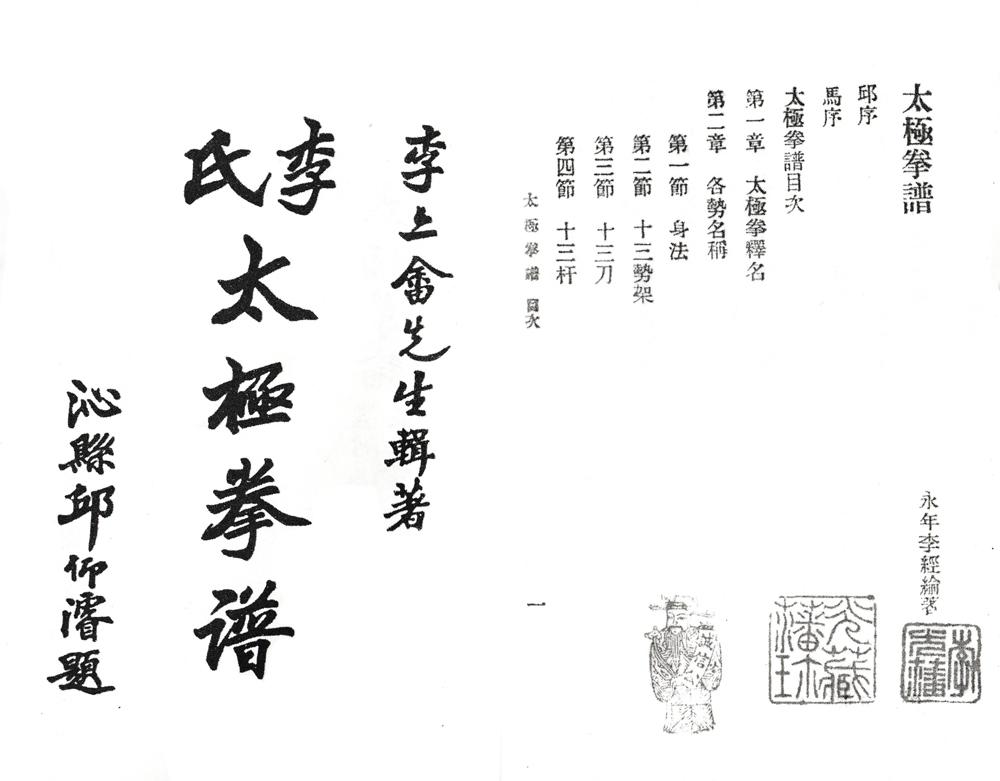 李亦畬先生輯著
李氏
太極拳譜
沁縣邱仰濬題
太極拳譜
永年李經綸著
邱序
馬序
太極拳譜目次
第一章 太極拳釋名
第二章 各勢名稱
第一節 身法
第二節 十三勢架
第三節 十三刀
第四節 十三杆
太極拳譜 目次
一